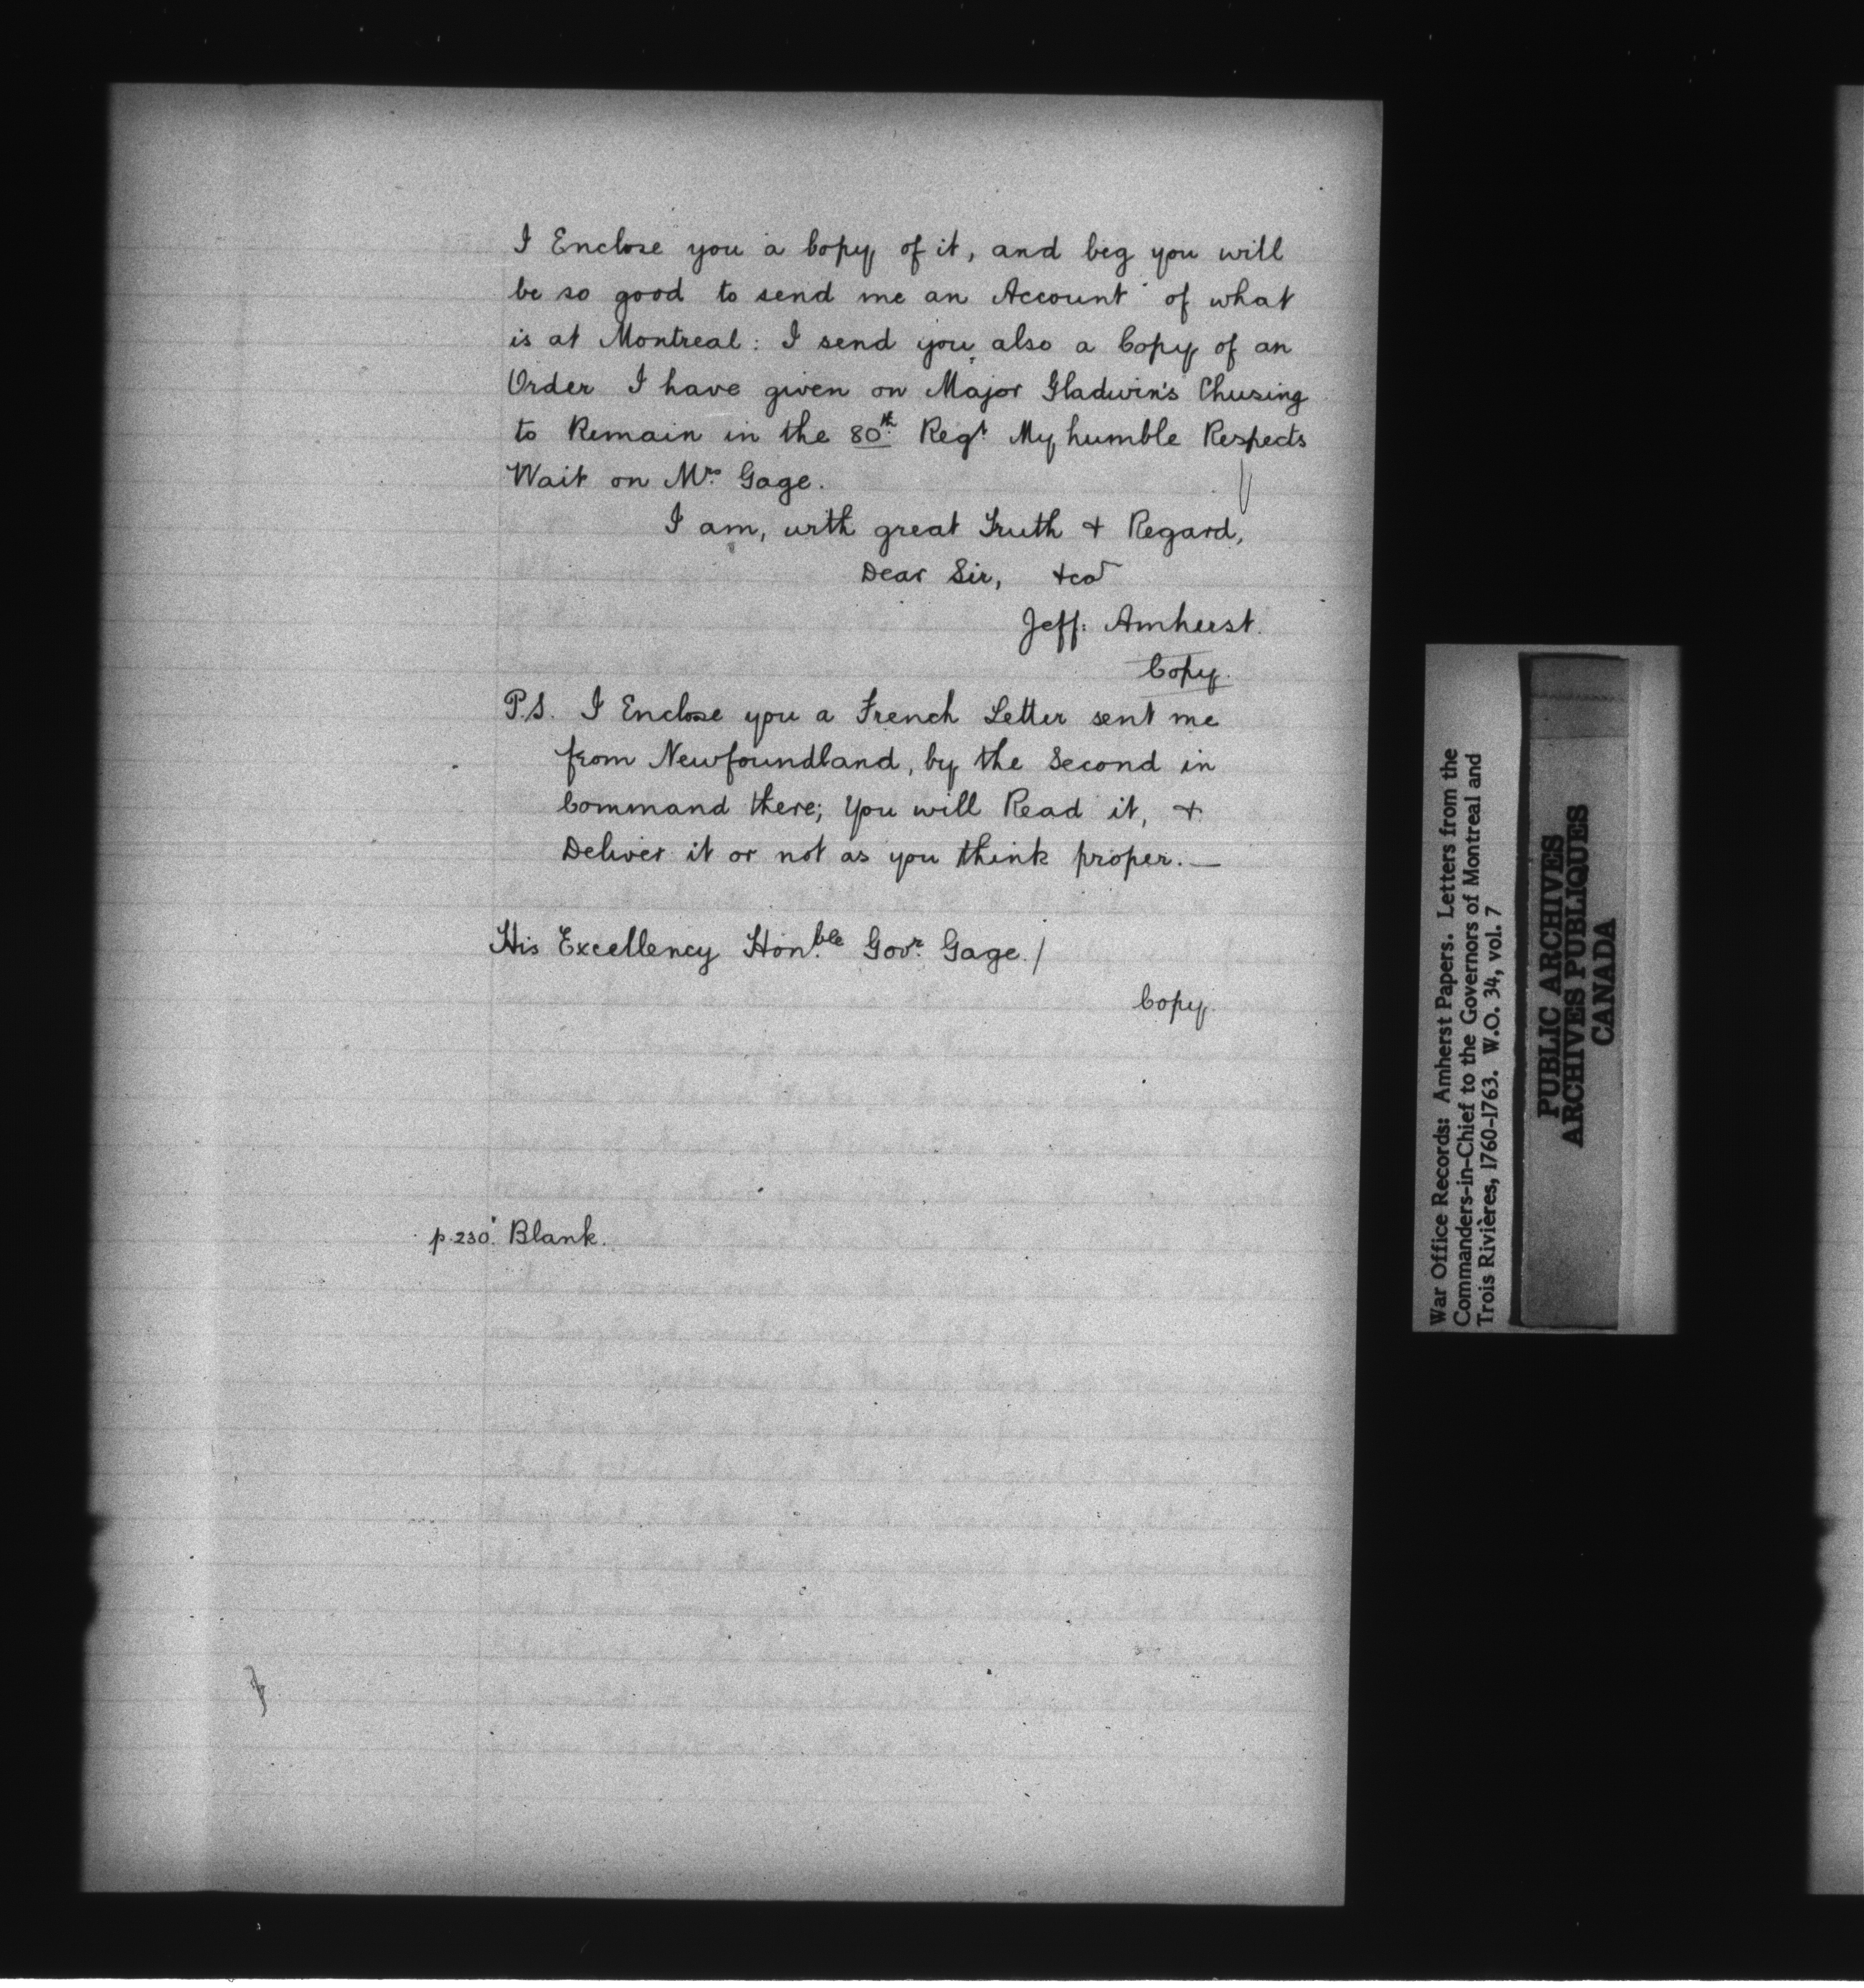 I Enclose you a Copy of it, and beg you will
be so good to send me an Account of what
is at Montreal: I send you also a Copy of an
Order I have given on Major Gladwin's Chusing
to Remain in the 80th Regt My humble Respects
Wait on Mrs Gage.
I am, with great Truth & Regard,
Dear Sir, &ca
Jeff: Amherst.
Copy.
P.S. I Enclose you a French Letter sent me
from Newfoundland, by the Second in
Command there; You will Read it, &
Deliver it or not as you think proper.—
His Excellency Hon.ble Govr. Gage./
Copy.
p.230. Blank.
War Office Records: Amherst Papers. Letters from the
Commanders-in-Chief to the Governors of Montreal and
Trois Rivières, 1760-1763. W.O. 34, vol. 7
PUBLIC ARCHIVES
ARCHIVES PUBLIQUES
CANADA